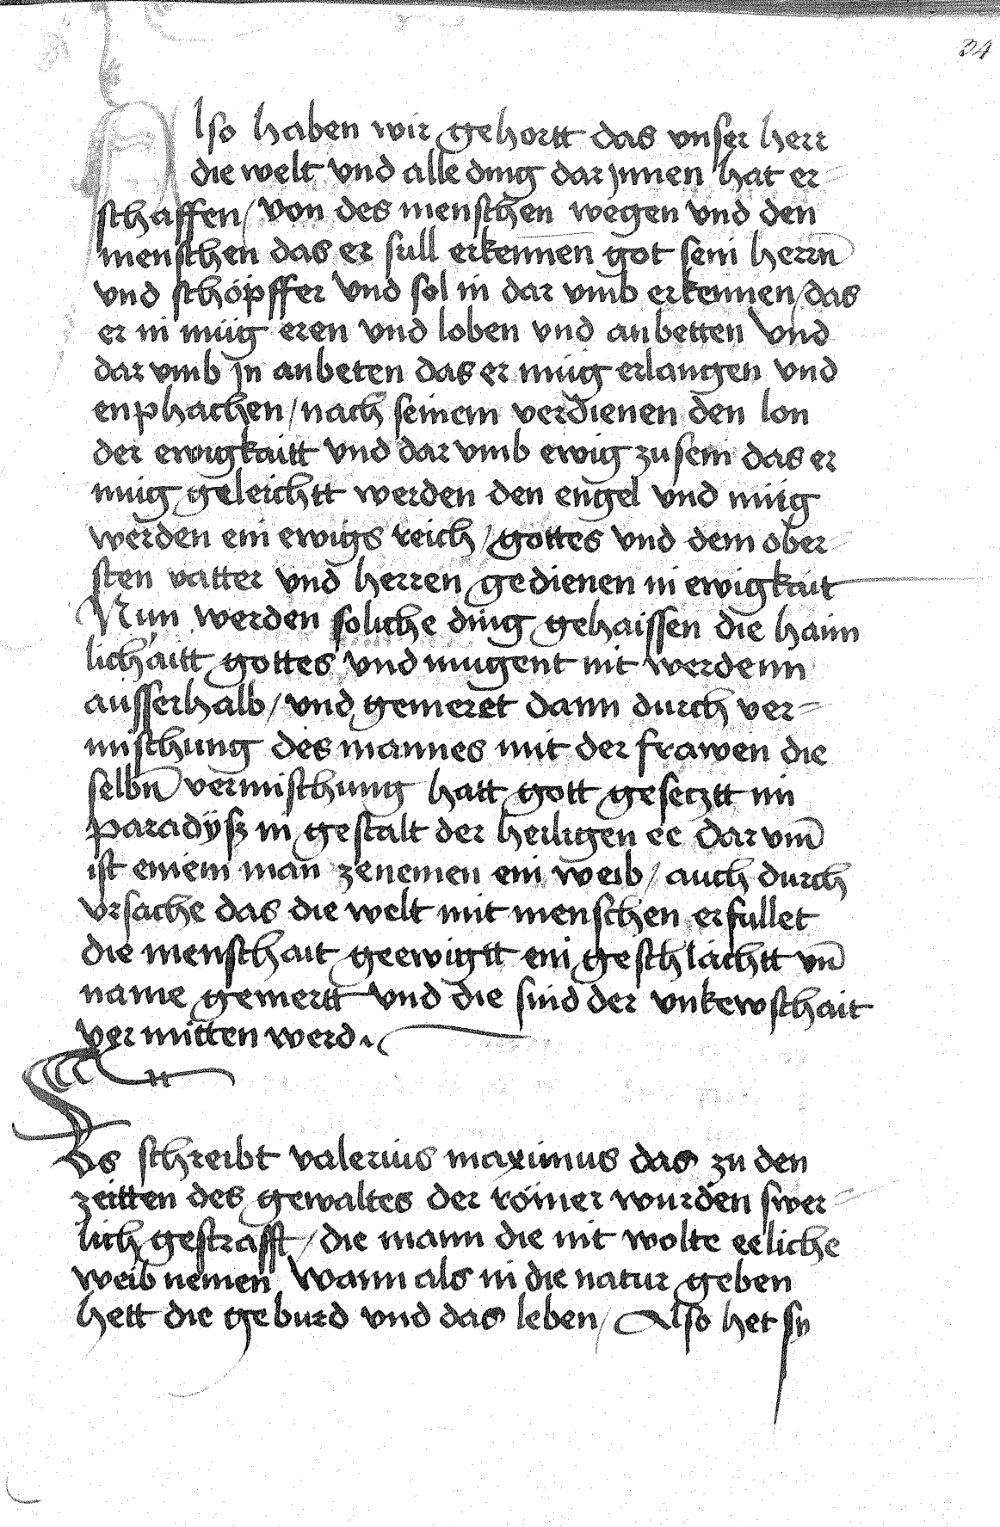 34
Also haben wir gehortt das vnser herr
die welt vnd alle ding dar jnnen hat er-
schaffen / von des menschen wegen vnd den
menschen das er sull erkennen got sein herrn̄
vnd schöpffer vnd sol in dar vmb erkennen / das
er in müg eren vnd loben vnd anbetten vnd
dar vmb jn anbeten das er müg erlangen vnd
enphachen / nach seinem verdienen den lon
der ewigkaitt vnd dar vmb ewig zu sein das er
müg geleichtt werden den engel vnd müg
werden ein ewigs reich / gottes vnd dem ober-
sten vatter vnd herren gedienen in ewigkait
Nun werden soliche ding gehaissen die haim
lichaitt gottes vnd mugent nit werdenn
aüsserhalb / vnd gemeret dann durch ver-
mischung des mannes mit der frawen die
selbn̄ vermischung hatt gott gesecztt im
paradÿsz in gestalt der heiligen ee Dar vm̄
ist einem man zenemen ein weib / auch durch
vrsache das die welt mit menschen erfullet
die menschait geewigtt ein geschlächtt vn̄
name gemertt vnd die sünd der vnkewschait
vermitten werd.
Es schreibt valeriüs maximus das zu den
zeitten des gewaltes der römer wurden swer-
lich gestrafft / die mann die nit wolte eeliche
weib nemen Wann als in die natur geben
hett die geburd vnd das leben / Also het sy